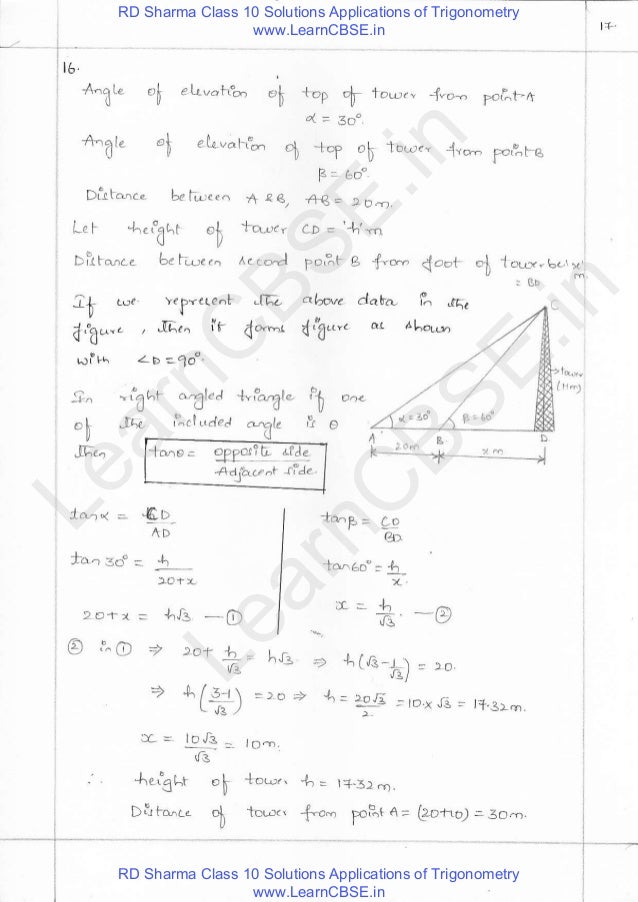 RD Sharma Class 10 Solutions Applications of Trigonometry
www.LearnCBSE.in
17.
16.
Angle of elevation of top of tower from point A
α = 30°.
Angle of elevation of top of tower from point B
β = 60°.
Distance between A & B, AB = 20m.
Let height of tower CD = 'h'm
Distance between second point B from foot of tower be 'x'
m.
= BD
If we represent the above data in the
figure, then it forms figure as shown
with ∠D = 90°.
In right angled triangle if one
of the included angle is θ
then tanθ = opposite side / Adjacent side.
C
tower
(Hm)
α = 30°
β = 60°
A B D
20m x m
tanα = CD / AD
tan 30° = h / 20+x
20+x = h√3 — ①
tanβ = CD / BD
tan60° = h / x.
x = h / √3. — ②
② in ① ⇒ 20 + h/√3 = h√3 ⇒ h(√3 - 1/√3) = 20.
⇒ h(3-1/√3) = 20 ⇒ h = 20√3/2 = 10.x √3 = 17.32m.
x = 10√3/√3 = 10m.
∴ height of tower h = 17.32m.
Distance of tower from point A = (20+10) = 30m.
LearnCBSE.in
LearnCBSE.in
RD Sharma Class 10 Solutions Applications of Trigonometry
www.LearnCBSE.in